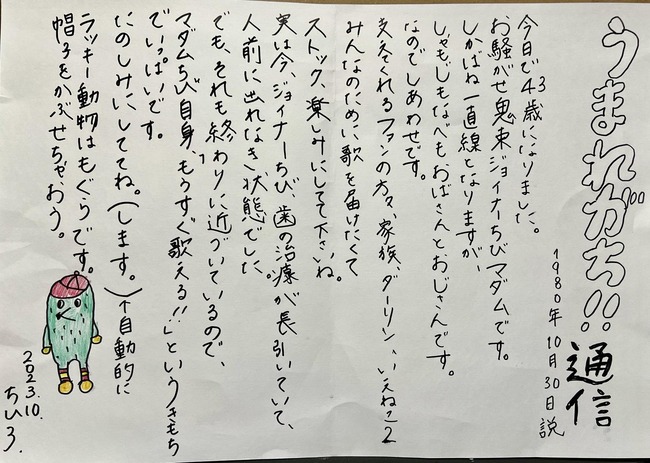 うまれがち!!通信
1980年10月30日説
今日で43歳になりました。
お騒がせ鬼束ジョイナーちびマダムです。
しかばね一直線となりますが、
しゃもじもなべもおばさんとおじさんです。
なのでしあわせです。
支えてくれるファンの方々、家族、ダーリン、いえねこ2
みんなのために歌を届けたくて
ストック、楽しみにしてて下さいね。
実は今、ジョイナーちび、歯の治療が長引いていて、
人前に出れなき状態でした。
でも、それも終わりに近づいているので、
マダムちび自身、「もうすぐ歌える!!」というきもち
でいっぱいです。
にのしみにしててね。(します。)(↑自動的に
ラッキー動物はもぐらです。
帽子をかぶせちゃおう。
2023.10.
ちひろ.